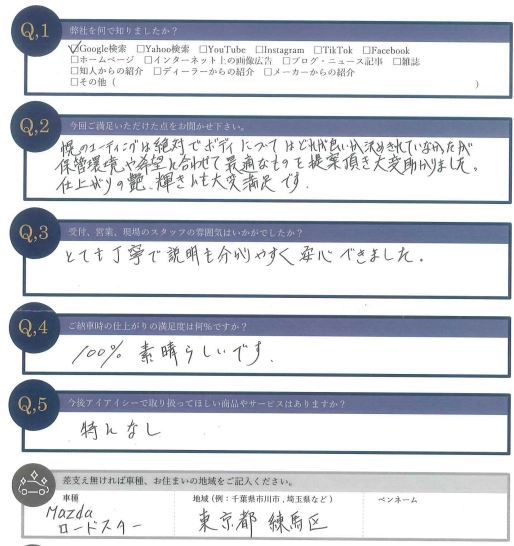 Q,1
弊社を何で知りましたか？
☑Google検索 □Yahoo検索 □YouTube □Instagram □TikTok □Facebook
□ホームページ □インターネット上の画像広告 □ブログ・ニュース記事 □雑誌
□知人からの紹介 □ディーラーからの紹介 □メーカーからの紹介
□その他（ ）
Q,2
今回ご満足いただけた点をお聞かせ下さい。
幌のコーティングは絶対でボディについてはどれが良いか決めきれていなかったが
保管環境や希望に合わせて最適なものを提案頂き大変助かりました。
仕上がりの艶、輝きんも大変満足です.
Q,3
受付、営業、現場のスタッフの雰囲気はいかがでしたか？
とても丁寧で説明も分かりやすく安心できました。
Q,4
ご納車時の仕上がりの満足度は何%ですか？
100% 素晴らしいです.
Q,5
今後アイアイシーで取り扱ってほしい商品やサービスはありますか？
特になし
差支え無ければ車種、お住まいの地域をご記入ください。
車種 地域（例：千葉県市川市，埼玉県など） ペンネーム
Mazda
ロードスター 東京都 練馬区